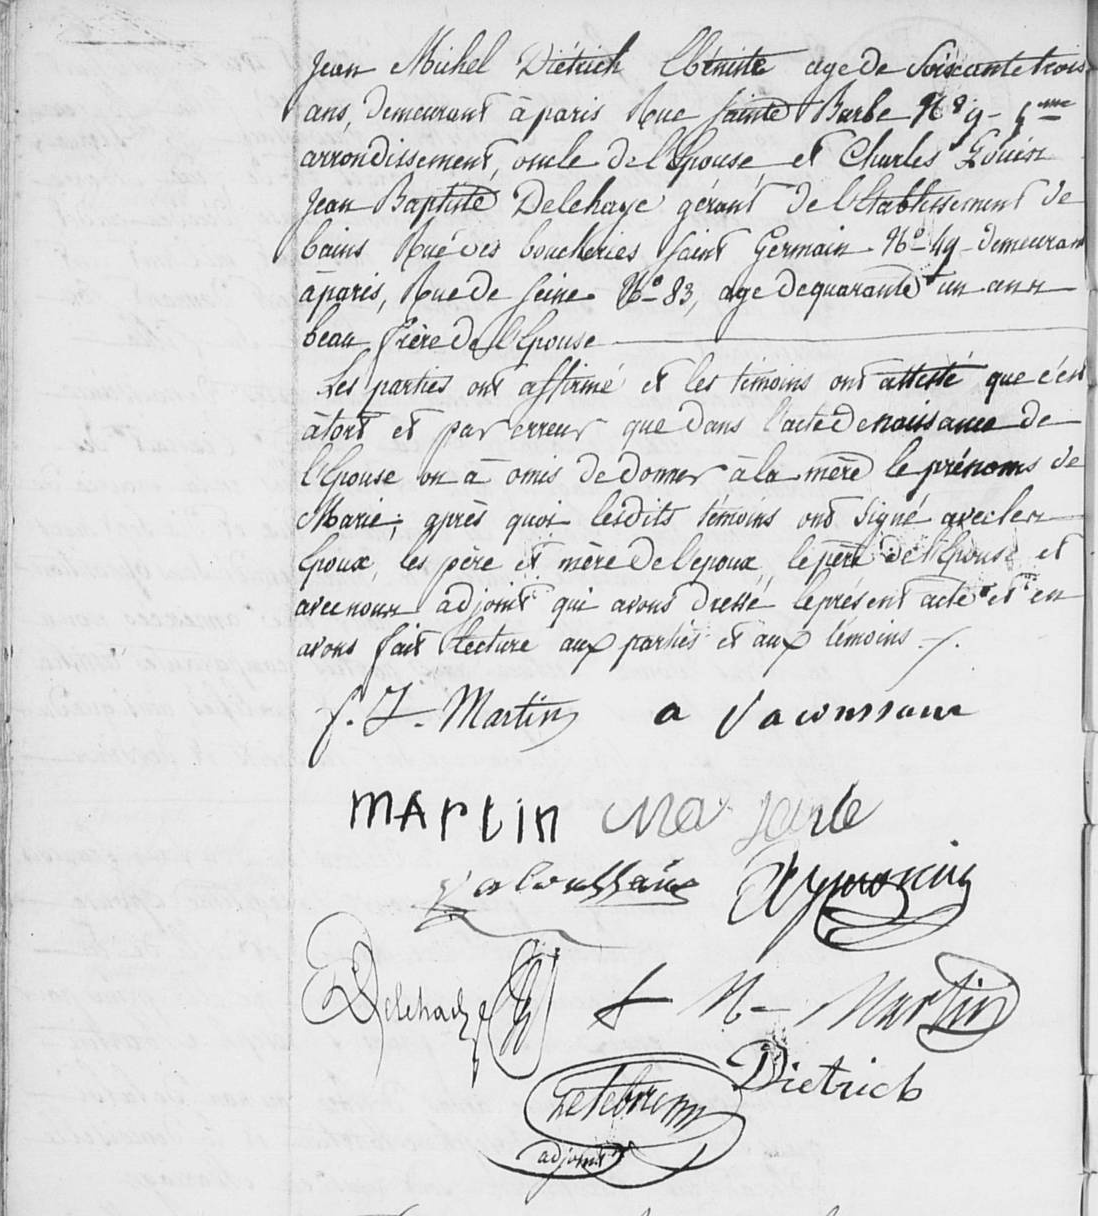 Jean Michel Diétrich Ebéniste age de Soixante trois
ans, demeurant à paris Rue Sainte Barbe No 9 - 5me
arrondissement, oncle de l'Epouse, et Charles Louis
Jean Baptiste Delehaye gérant de l'Etablissement de
bains Rue des boucheries Saint Germain No 49 demeurant
à paris, Rue de Seine No 83, age de quarante un ans
beau frère de l'Epouse
Les parties ont affirmé et les témoins ont attesté que c'est
à tort et par erreur que dans l'acte de naissance de
l'Epouse on à omis de donner à la mère le prénoms de
Marie; après quoi lesdits témoins ont signé avec les
Epoux, les père et mère de l'epoux, le père de l'Epouse et
avec nous adjoint qui avons dressé le présent acte et en
avons fait lecture aux parties et aux témoins ./.
f. J. Martin a
Martin
Delehaye f N Martin
Dietrich
adjoint